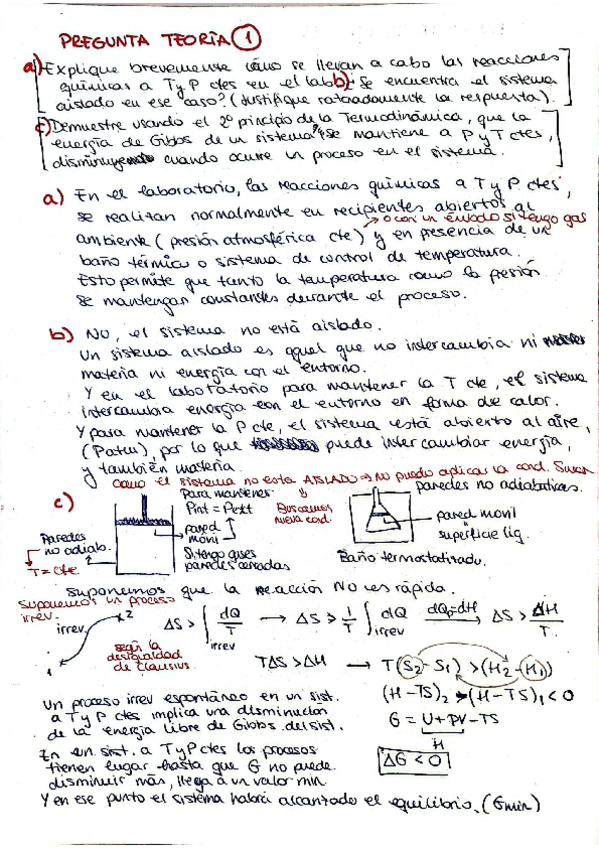 PREGUNTA TEORÍA 1
a) Explique brevemente cómo se llevan a cabo las reacciones
químicas a T y P ctes en el lab. b) ¿Se encuentra el sistema
aislado en ese caso? (Justifique razonadamente la respuesta).
c) Demuestre usando el 2º principio de la Termodinámica, que la
energía de Gibbs de un sistema que se mantiene a P y T ctes,
disminuye cuando ocurre un proceso en el sistema.
a) En el laboratorio, las reacciones químicas a T y P ctes,
se realizan normalmente en recipientes abiertos al
→ o con un émbolo si tengo gas
ambiente (presión atmosférica cte) y en presencia de un
baño térmico o sistema de control de temperatura.
Esto permite que tanto la temperatura como la presión
se mantengan constantes durante el proceso.
b) No, el sistema no está aislado.
Un sistema aislado es aquel que no intercambia ni
materia ni energía con el entorno.
Y en el laboratorio para mantener la T cte, el sistema
intercambia energía con el entorno en forma de calor.
Y para mantener la P cte, el sistema está abierto al aire,
(Patm), por lo que puede intercambiar energía,
y también materia.
Como el sistema no esta AISLADO ⇒ No puedo aplicar la cond.
c)
Para mantener
Pint = Pext
Buscamos
nueva cond.
paredes no adiabaticas.
Paredes
no adiab.
T = cte
pared
movil
Si tengo gases
paredes cerradas
pared movil
superficie liq.
Baño termostatizado.
suponemos que la reacción NO es rápida.
suponemos un proceso
irrev.
irrev
1
2
según la
desigualdad
de Clausius.
ΔS > ∫irrev dQ/T → ΔS > 1/T ∫irrev dQ dQp=dH → ΔS > ΔH/T
TΔS > ΔH → T(S2-S1) > (H2-H1)
(H-TS)2 - (H-TS)1 < 0
G = U + PV - TS
H
ΔG < 0
Un proceso irrev espontáneo en un sist.
a T y P ctes implica una disminución
de la energía libre de Gibbs del sist.
En un sist. a T y P ctes los procesos
tienen lugar hasta que G no puede
disminuir más, llega a un valor min
Y en ese punto el sistema habrá alcanzado el equilibrio. (Gmin)